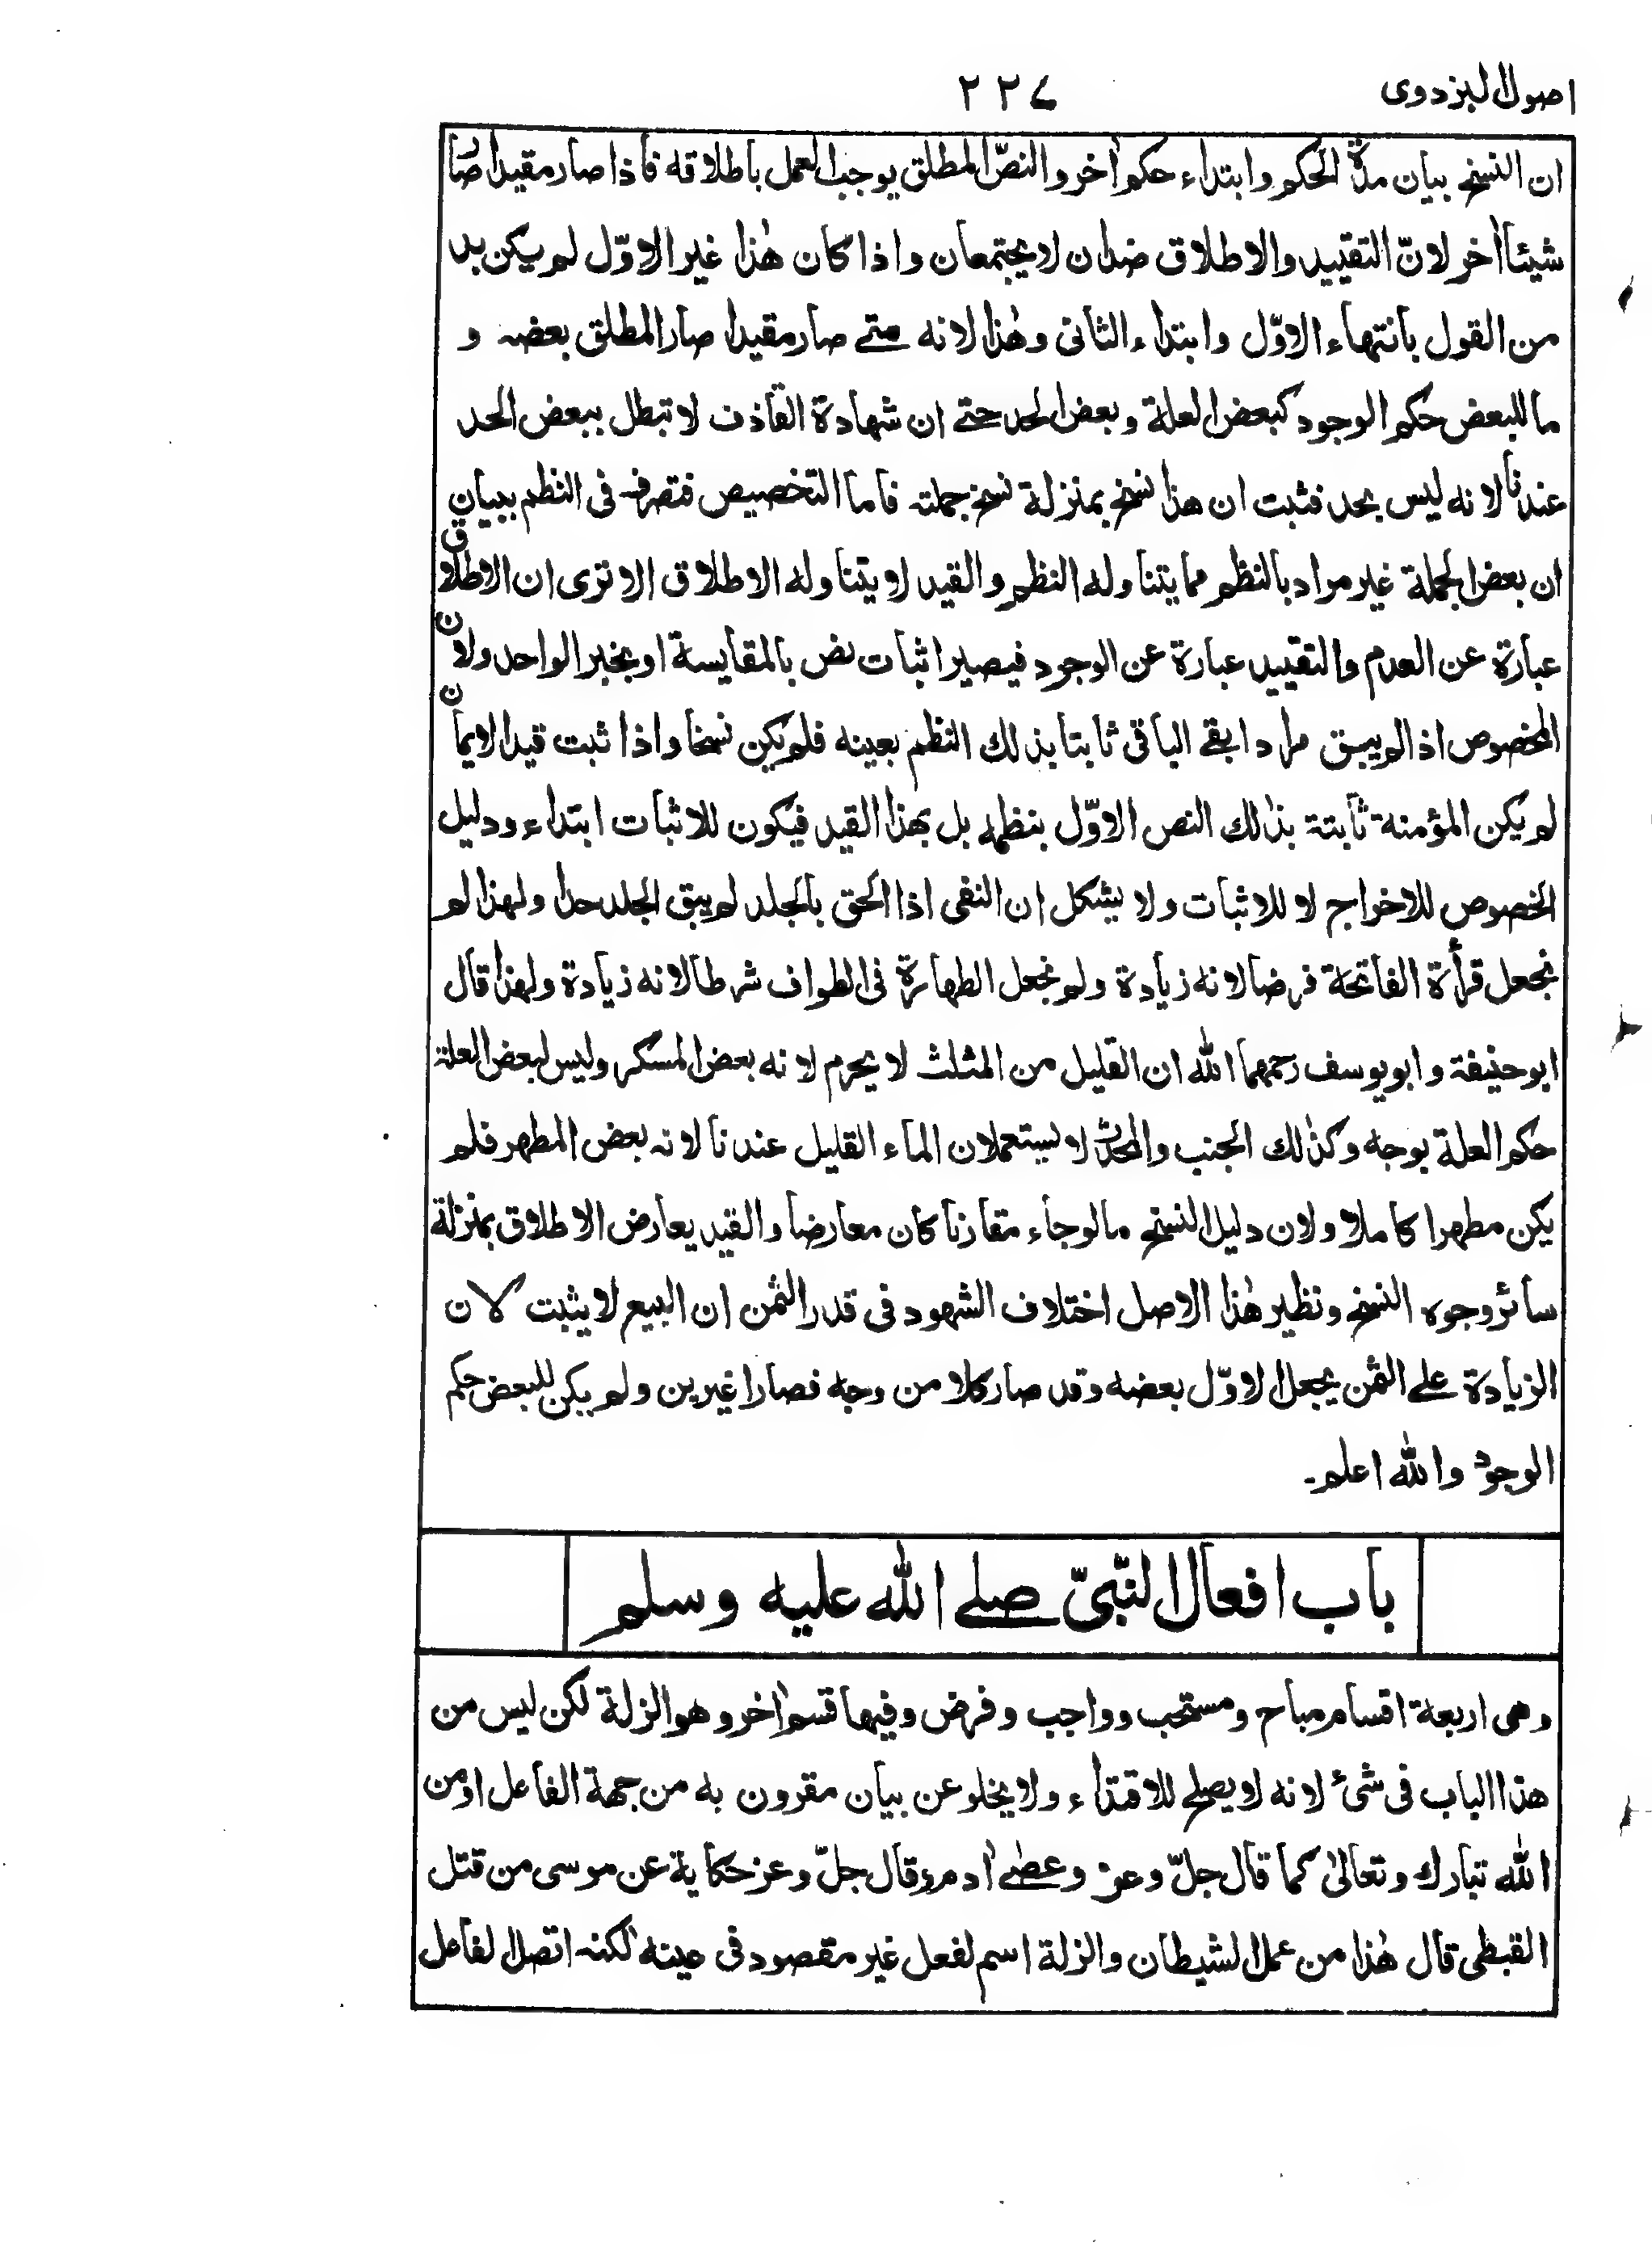 اصول البزدوی ٢٢٧
ان النسخ بیان مدة الحکم وابتداء حکم اٰخر والنصّ المطلق یوجب العمل باطلاقه فاذا صار مقیدا صار
شیئا اٰخر لانّ التقیید والاطلاق ضدان لا یجتمعان واذا کان هٰذا غیر الاوّل لم یکن بد
من القول بانتهاء الاوّل وابتداء الثانی وهٰذا لانه متے صار مقیدا صار المطلق بعضہ و
ما للبعض حکم الوجود کبعض العلة وبعض الحد حتے ان شهادة القاذف لا تبطل ببعض الحد
عندنا لانه لیس بحد فثبت ان هذا نسخ بمنزلة نسخ جملتہ فاما التخصیص فتصرف فی النظم ببیان
ان بعض الجملة غیر مراد بالنظم مما یتناوله النظم والقید لا یتناوله الاطلاق الا تری ان الاطلاق
عبارة عن العدم والتقیید عبارة عن الوجود فیصیر اثبات نص بالمقایسة او بخبر الواحد ولان
المخصوص اذا لم یبق مرادا بقے الباقی ثابتا بذلك النظم بعینه فلم یکن نسخا واذا ثبت قید الایمان
لم یکن المؤمنة ثابتة بذٰلك النص الاوّل بنظمہ بل بهذا القید فیکون للاثبات ابتداء ودلیل
الخصوص للاخراج لا للاثبات ولا یشکل ان النفی اذا الحق بالجلد لم یبق الجلد حدا ولهذا لم
نجعل قرأة الفاتحة فرضا لانه زیادة ولم نجعل الطهارة فی الطواف شرطا لانه زیادة ولهذا قال
ابو حنیفة وابو یوسف رحمهما الله ان القلیل من المثلث لا یحرم لانه بعض المسکر ولیس لبعض العلة
حکم العلة بوجه وکذٰلك الجنب والمحدث لا یستعملان الماء القلیل عندنا لانہ بعض المطهر فلم
یکن مطهرا کاملا ولان دلیل النسخ ما لو جاء مقارنا کان معارضا والقید یعارض الاطلاق بمنزلة
سائر وجوه النسخ ونظیر هٰذا الاصل اختلاف الشهود فی قدر الثمن ان البیع لا یثبت لان
الزیادة علے الثمن یجعل الاوّل بعضه وقد صار کلا من وجه فصارا غیرین ولم یکن للبعض حکم
الوجود والله اعلم۔
باب افعال النّبیّ صلے الله علیه وسلم
وهی اربعة اقسام مباح ومستحب وواجب وفرض وفیها قسم اٰخر وهو الزلة لکن لیس من
هذا الباب فی شیٔ لانه لا یصلح للاقتداء ولا یخلو عن بیان مقرون به من جهة الفاعل او من
الله تبارك وتعالیٰ کما قال جلّ وعز وعصٰے اٰدم وقال جلّ وعز حکایة عن موسی من قتل
القبطی قال هٰذا من عمل الشیطان والزلة اسم لفعل غیر مقصود فی عینه لکنہ اتصل الفاعل